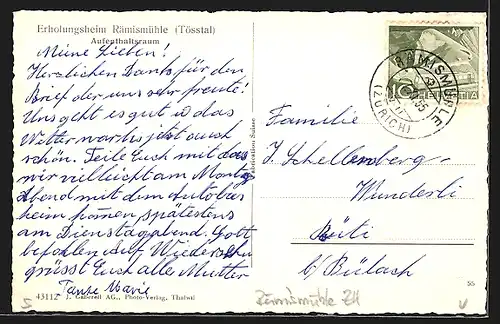 Erholungsheim Rämismühle (Tösstal)
Aufenthaltsraum
Meine Lieben!
Herzlichen Dank für den
Brief der uns sehr freute!
Uns geht es gut u das
Wetter war bis jetzt auch
schön. Teile Euch mit das
wir vielleicht am Montag
Abend mit dem Autobus
heim kommen, spätestens
am Dienstagabend. Gott
befohlen Auf Wiedersehn
grüsst Euch alle Mutter
Tante Marie
43112 J. Gaberell AG., Photo-Verlag, Thalwil
Fabrication Suisse
RÄMISMÜHLE
(ZÜRICH)
10 HELVETIA
Familie
J. Schellenberg-
Wunderli
Rüti
b/ Bülach
55
Rämismühle ZH